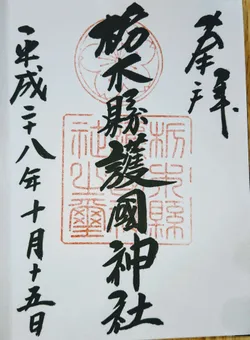 奉拝
栃木縣護國神社
栃木縣護國神社之璽
平成二十八年十月十五日